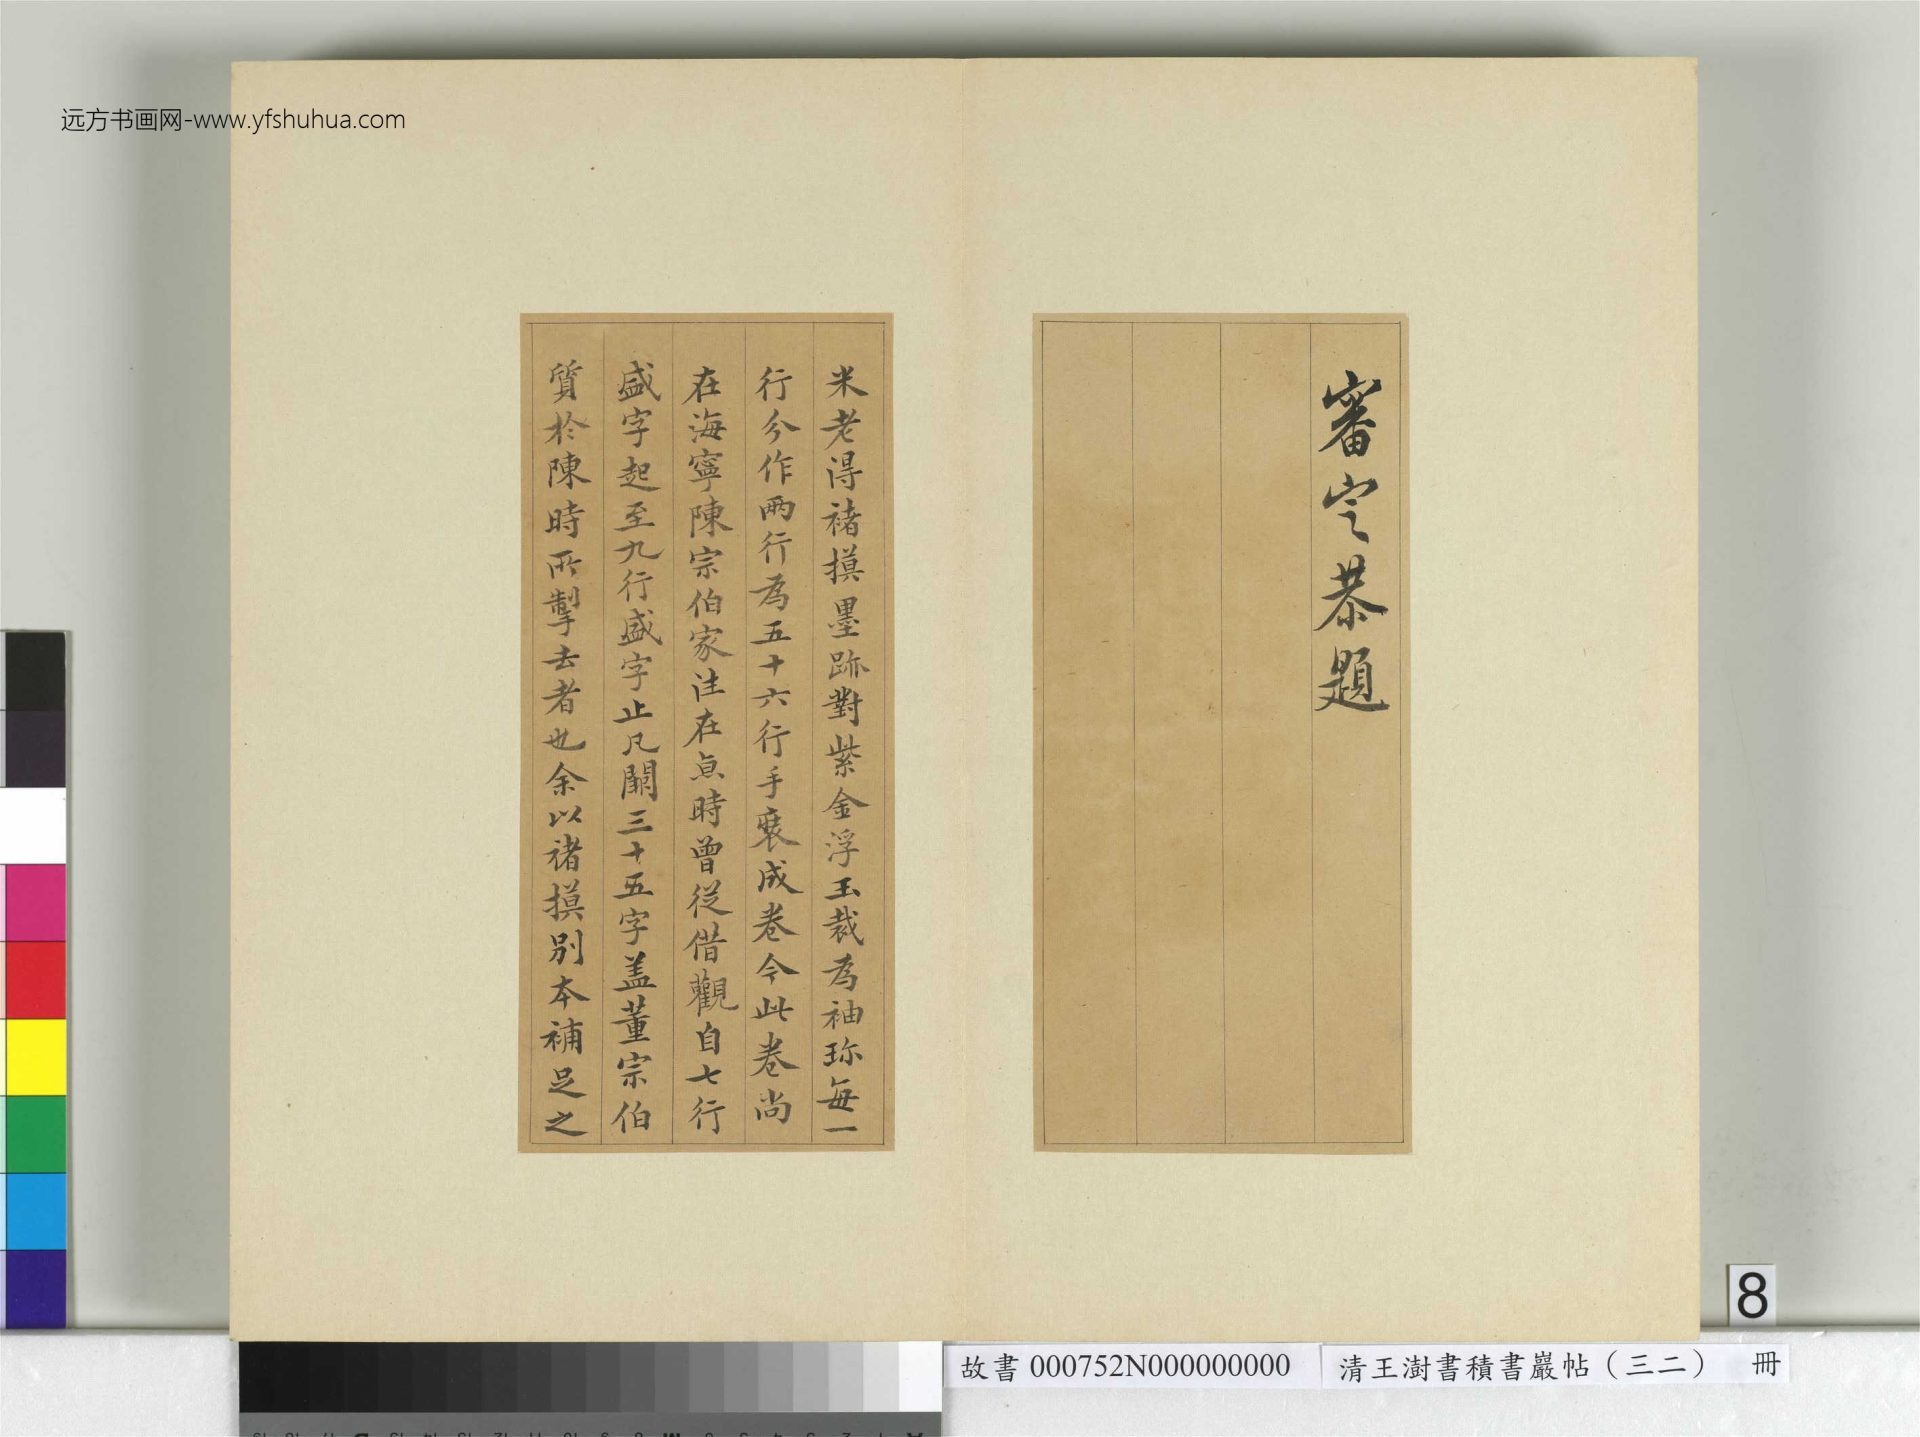 远方书画网-www.yfshuhua.com
審定恭題
米老得褚摸墨跡對紫金浮玉裁為袖珎每一
行分作兩行為五十六行手裝成卷今此卷尚
在海寧陳宗伯家注在京時曾從借觀自七行
盛字起至九行盛字止凡闕三十五字盖董宗伯
質於陳時所掣去者也余以褚摸別本補足之
8
故書 000752N000000000
清王澍書積書巖帖（三二） 冊